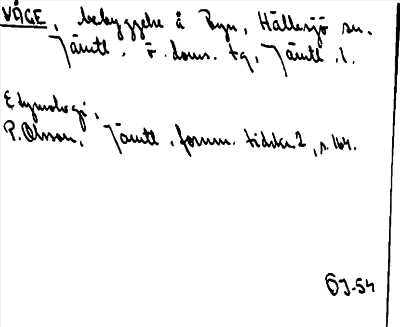 VÅGE, bebyggelse å Byn, Hällesjö sn.
Jämtl. ö. doms. tg, Jämtl. l.
Etymologi,
P. Olsson, Jämtl. fornm. tidskr. 2, s. 164.
ÖJ-54